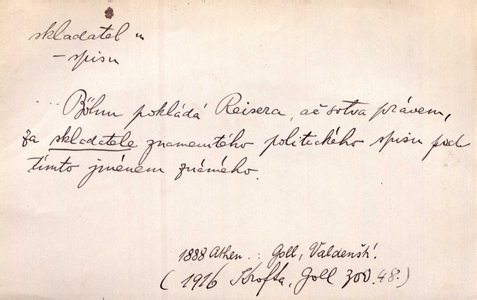 skladatel "
– spisu
... Böhm pokládá Reisera, ač sotva právem,
za skladatele znamenitého politického spisu pod
tímto jménem známého.
1888 Athen. : Goll, Valdenští.
(1916 Krofta, Goll 48.)